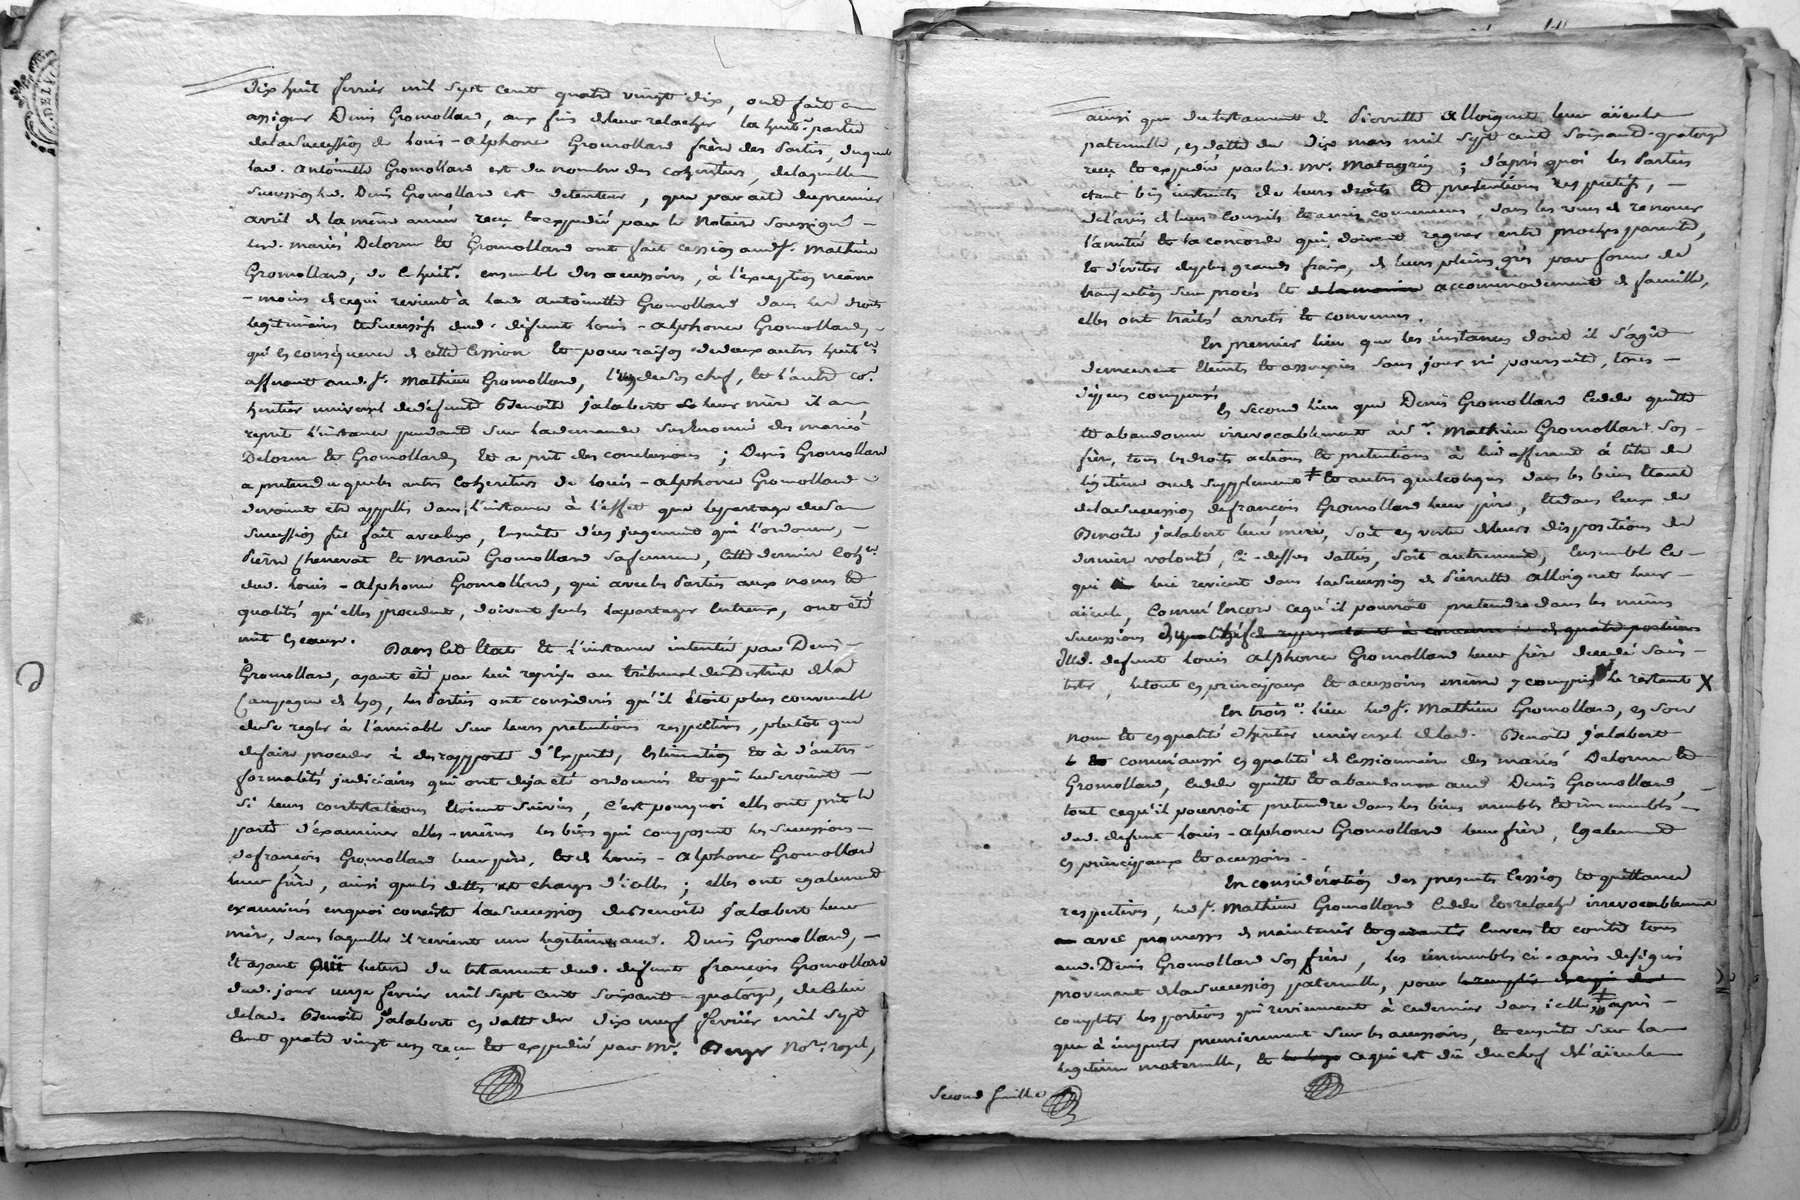 dix huit fevrier mil sept cent quatre vingt dix, ont fait
assigner Denis Gromollard, aux fins de leur relacher la huit.e partie
de la succession de Louis-Alphonse Gromollard frère des parties, duquel
lad. Antoinette Gromollard est du nombre des cohéritiers, de laquelle
succession led. Denis Gromollard est detenteur, que par acte du premier
avril de la même année reçu et expédié par le Notaire soussigné
lesd. mariés Delorme et Gromollard ont fait cession aud. s.r Mathieu
Gromollard, de ce huit.e ensemble des accessoires, à l'exception néan
-moins de ce qui revient à lad. Antoinette Gromollard dans les droits
legitimaires et successifs dud. défunt Louis-Alphonse Gromollard,
qu'en conséquence de cette cession et pour raison de deux autres huit.es
afferant aud. s.r Mathieu Gromollard, l'un de son chef, et l'autre co.e
heritier universel de défunte Benoite Jalabert leur mère il a
reprit l'instance pendante sur la demande des mariés
Delorme et Gromollard, et a prit des conclusions ; Denis Gromollard
a pretendu que les autres cohéritiers de Louis-Alphonse Gromollard
devoient etre appellés dans l'instance à l'effet que le partage de sa
succession fut fait avec eux, ensuite d'un jugement qui l'ordonne,
Pierre Chenevat et Marie Gromollard sa femme, cette derniere coh.re
dud. Louis-Alphonse Gromollard, qui avec les parties aux noms et
qualités qu'elles procedent, doivent seuls la partager entreux, ont été
mit en cause.
Dans cet etat et l'instance intentée par Denis
Gromollard, ayant été par lui reprise au tribunal du District de la
Campagne de Lyon, les parties ont consideré qu'il étoit plus convenable
de se regler à l'amiable sur leurs pretentions respectives, plutôt que
de faire proceder à des rapports d'experts, estimation et à d'autres
formalités judiciaires qui ont deja été ordonnés et qui le seroient
si leurs contestations étoient suivies, c'est pourquoi elles ont prit le
parti d'examiner elles-mêmes les biens qui composent les successions
de françois Gromollard leur père, et de Louis-Alphonse Gromollard
leur frère, ainsi que les dettes et charges d'icelles ; elles ont egalement
examinés en quoi consiste la succession de Benoite Jalabert leur
mère, dans laquelle il revient une legitime aud. Denis Gromollard,
et ayant eüe lecture du testament dud. défunt françois Gromollard
dud. jour onze fevrier mil sept cent soixante-quatorze, de celui
de lad. Benoite Jalabert en datte du dix neuf fevrier mil sept
cent quatre vingt un reçu et expédié par M.e Berger No.re royal,
ainsi que du testament de Pierrette Alloignet leur aïeule
paternelle, en datte du dix mars mil sept cent soixante-quatorze
reçu et expédié par led. M.e Matagrin ; d'après quoi les parties
étant bien instruits de leurs droits et pretentions respectifs,
de l'avis de leurs conseils et amis communs, dans les vues de renouer
l'amitié et la concorde qui doivent regner entre proches parents,
et d'éviter de plus grands frais, de leurs pleins grés par forme de
transaction sur procès et accommodement de famille,
elles ont traités arretés et convenus.
En premier lieu que les instances dont il s'agit
demeurent éteintes et assoupies sans jour ni poursuite, tous
dépens compensés
En second lieu que Denis Gromollard cedde quitte
et abandonne irrevocablement au s.r Mathieu Gromollard son
frère, tous les droits actions et pretentions à lui afferant à titre de
légitime ou de supplement et autres quelconques dans les biens etant
de la succession de françois Gromollard leur père, et dans ceux de
Benoite Jalabert leur mère, soit en vertu de leurs dispositions de
derniere volonté, ci-dessus dattées, soit autrement, ensemble ce
qui lui revient dans la succession de Pierrette Alloignet leur
aïeule, comm' encore ce qu'il pourroit pretendre dans les mêmes
successions
dud. defunt Louis Alphonse Gromollard leur frère decedé sans
tester, le tout en principaux et accessoires même y compris le restant X
En trois.e lieu led. s.r Mathieu Gromollard, en son
nom et en qualité d'héritier universel de lad. Benoite Jalabert
comm' aussi en qualité de cessionnaire des mariés Delorme et
Gromollard, cedde quitte et abandonne aud. Denis Gromollard,
tout ce qu'il pourroit pretendre dans les biens meubles et immeubles
dud. defunt Louis-Alphonse Gromollard leur frère, egalement
en principaux et accessoires.
En considération des presentes cession et quittance
respectives, led. s.r Mathieu Gromollard cedde et relache irrevocablement
avec promesse de maintenir et garantir envers et contre tous
aud. Denis Gromollard son frère, les immeubles ci-après designés
provenant de la succession paternelle, pour
completer les portions qui reviennent à ce dernier dans icelle, après
que à imputer premierement sur les accessoires, et ensuite sur la
legitime maternelle, et ce qui est dû du chef de l'aïeule
second feuillet